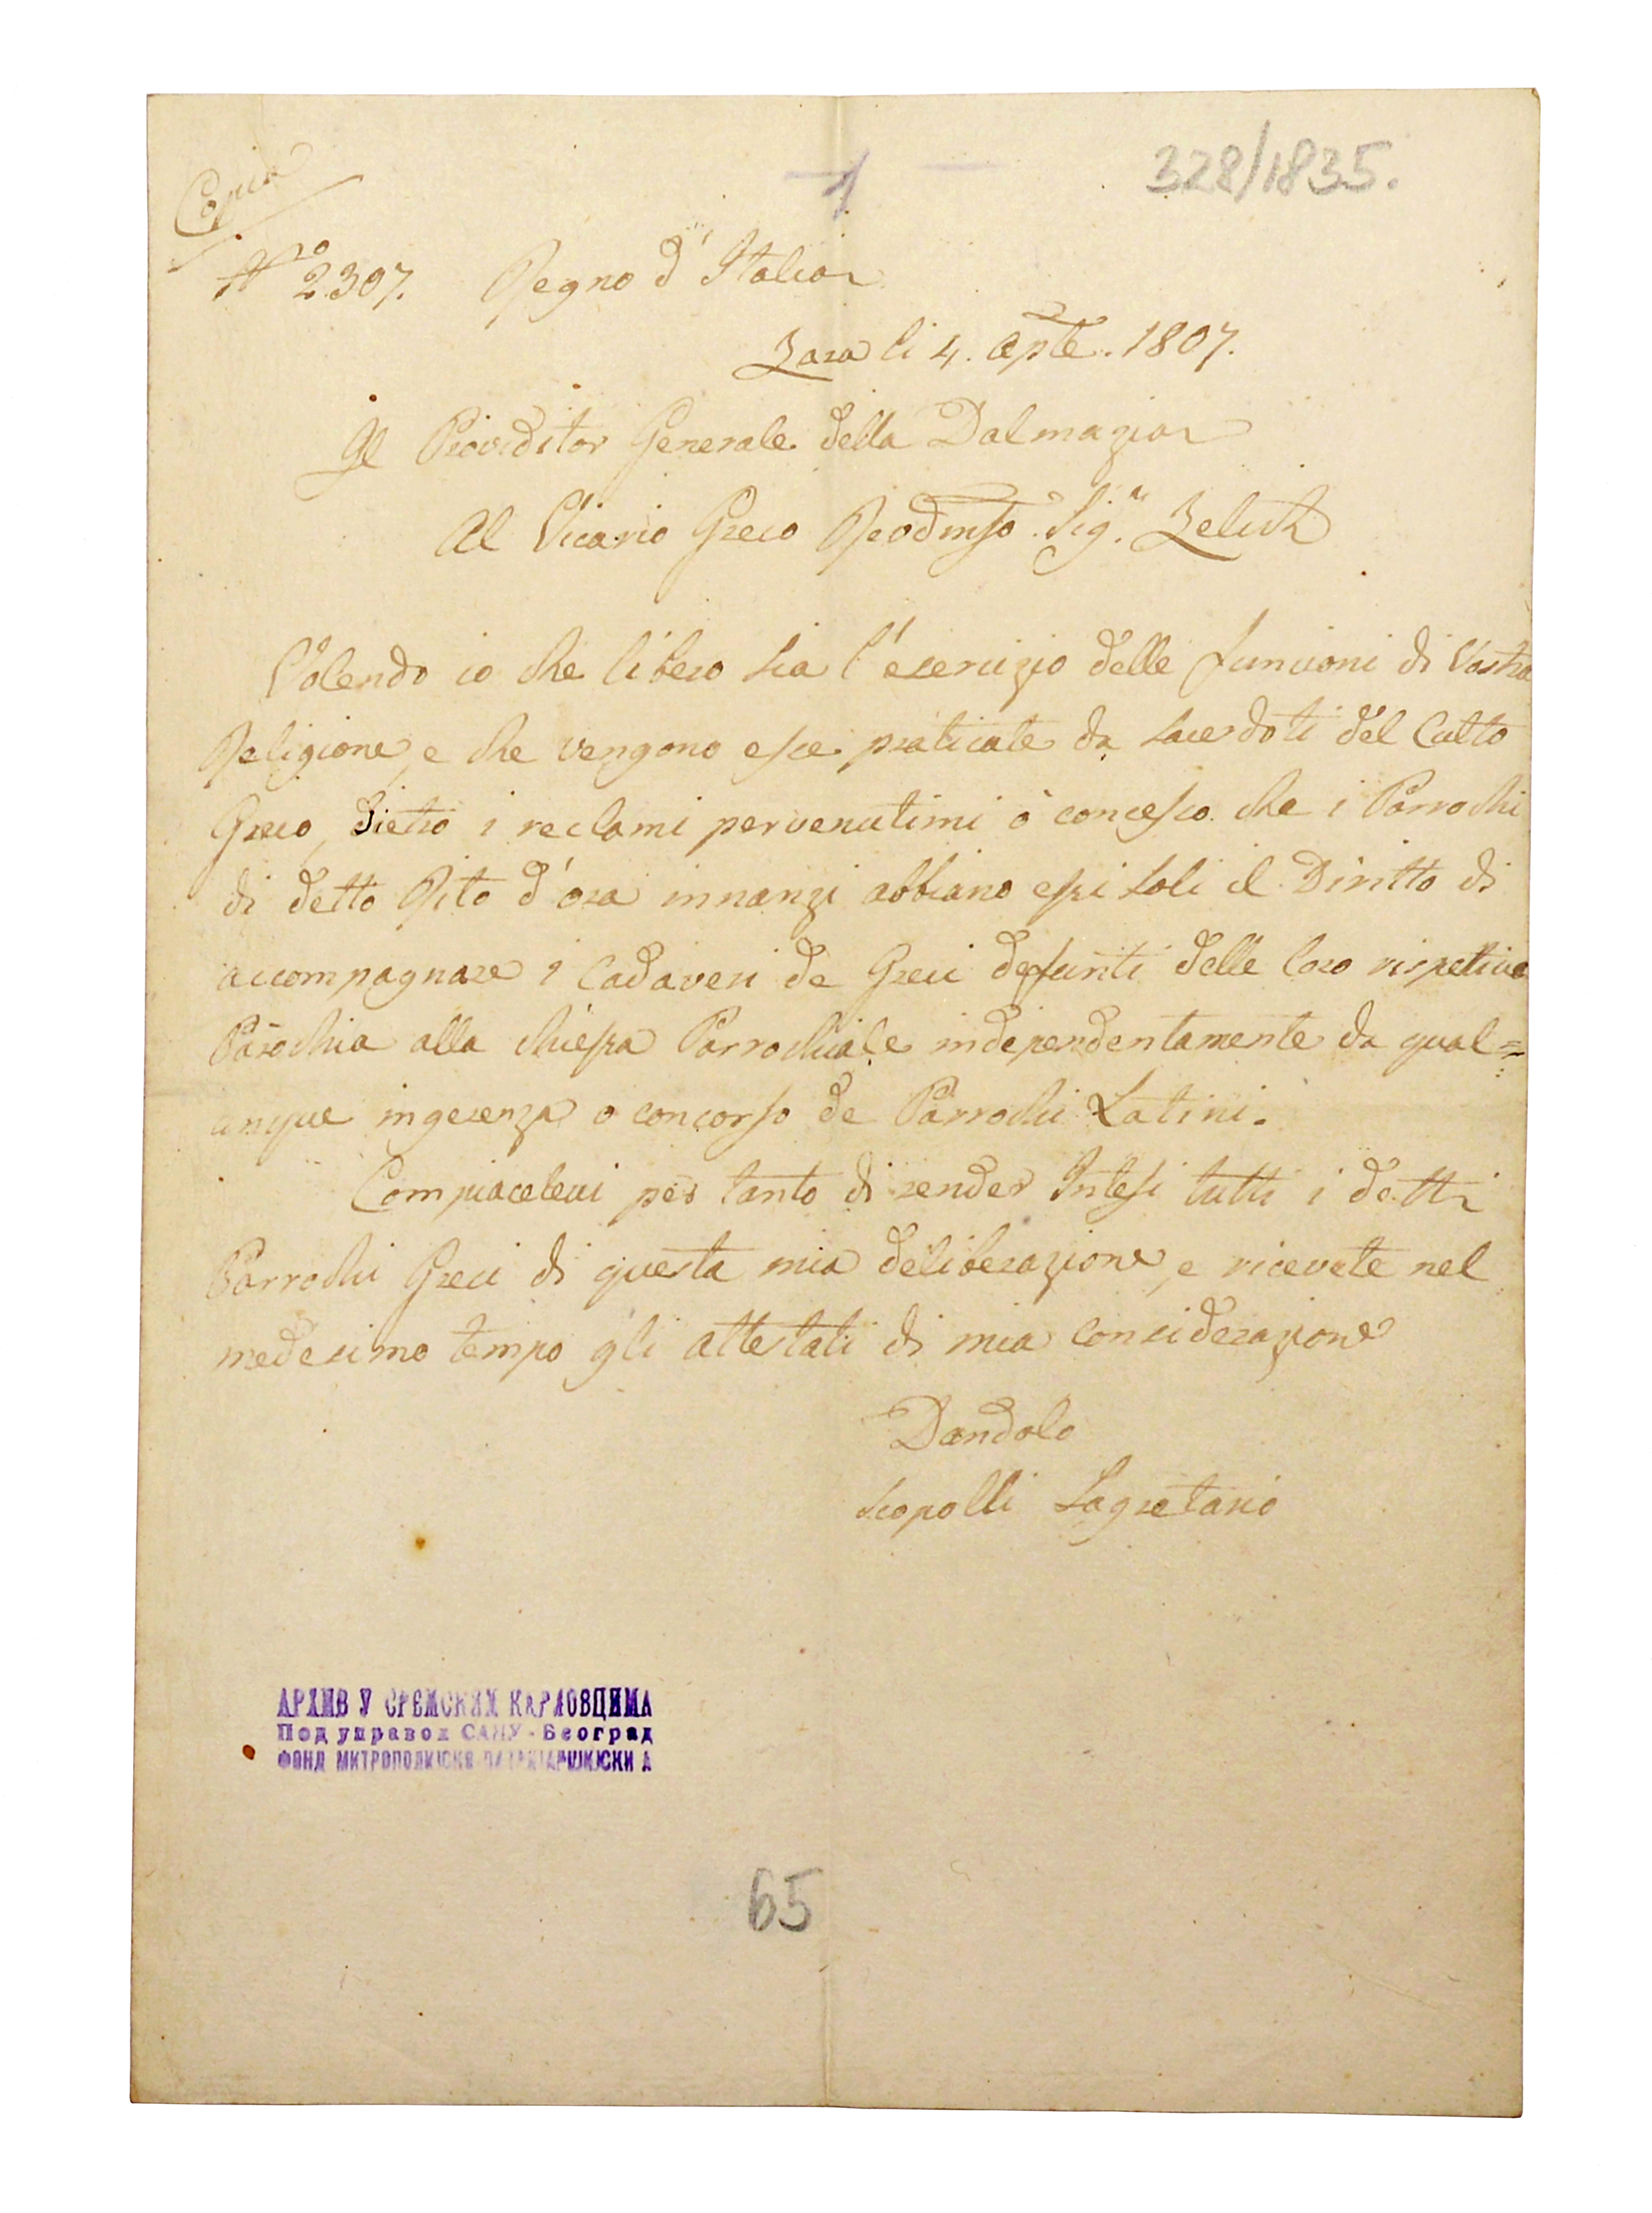 328/1835.
1
Copia
N.º 2307. Regno d'Italia
Zara li 4. Aprle. 1807.
Il Proveditor Generale della Dalmazia
Al Vicario Greco Sig.r Zelich
Volendo io che libero sia l'esercizio delle funcioni di Vostra
Religione, e che vengono esse praticate da Sacerdoti del Culto
Greco, dietro i reclami pervenutimi ò concesso che i Parrochi
di detto Rito d'ora innanzi abbiano essi soli il Diritto di
accompagnare i Cadaveri de Greci deffunti delle loro rispetive
Parochia alla chiessa Parrochiale independentamente da qual=
unque ingerenza o concorso de Parrochi Latini.
Compiacetevi per tanto di render Intesi tutti i detti
Parrochi Greci di questa mia deliberazione, e ricevete nel
medesimo tempo gli attestati di mia considerazione
Dandolo
Scopolli Sagretario
АРХИВ У СРЕМСКИМ КАРЛОВЦИМА
Под управом САНУ - Београд
ФОНД МИТРОПОЛИЈСКО ПАТРИЈАРШИЈСКИ А
65